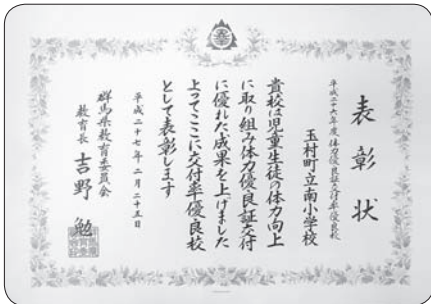 表彰状
平成二十六年度体力優良証交付率優良校
玉村町立南小学校
貴校は児童生徒の体力向上
に取り組み体力優良証交付
に優れた成果を上げました
よってここに交付率優良校
として表彰します
平成二十七年二月二十五日
群馬県教育委員会
教育長 吉野 勉